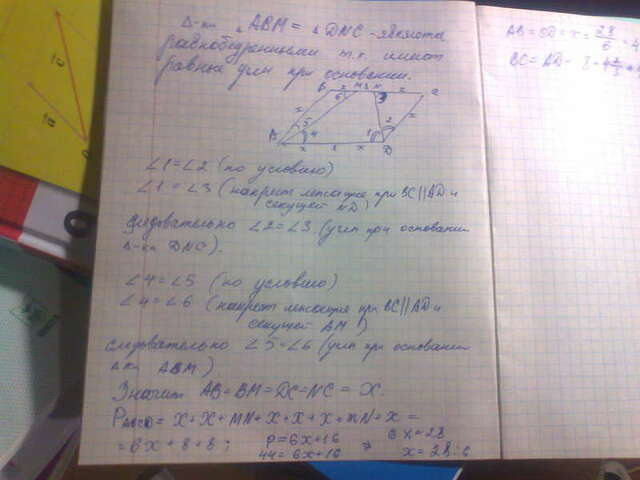 Δ-ки △ABM = △DNC - являются
равнобедренными т.к. имеют
равные углы при основании.
B x M 8 N x C
x 6 3 x
5 4 1 2
A x 8 x D
∠1=∠2 (по условию)
∠1=∠3 (накрест лежащие при BC||AD и
секущей ND)
следовательно ∠2=∠3 (углы при основании
Δ-ка DNC).
∠4=∠5 (по условию)
∠4=∠6 (накрест лежащие при BC||AD и
секущей AM)
следовательно ∠5=∠6 (углы при основании
Δка ABM)
Значит AB=BM=DC=NC=X.
PABCD= X+X+MN+X+X+X+MN+X=
=6X+8+8; P=6X+16 6X=28
44=6X+16 ⇒ X=28:6
AB=CD=X=28/6=4
BC=AD=
a
a